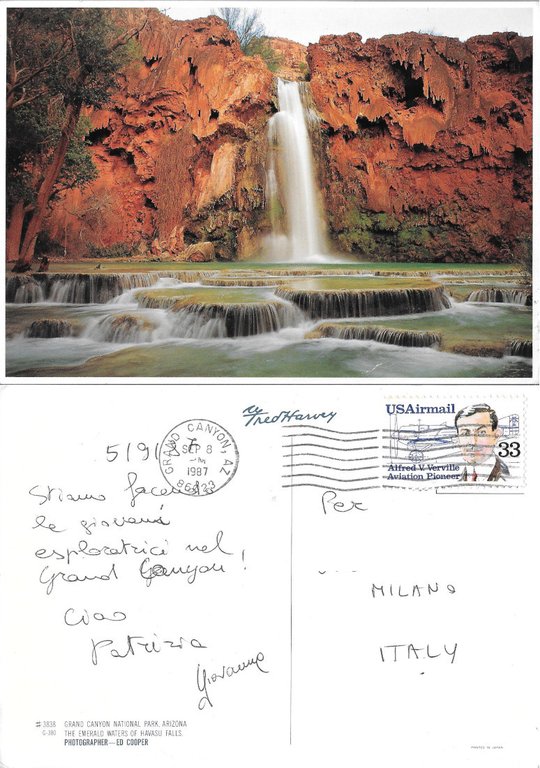 Fred Harvey
USAirmail
33
Alfred V. Verville
Aviation Pioneer
GRAND CANYON, AZ
SEP 8
1987
86023
5/9/87
Stiamo facendo
le giovani
esploratrici nel
Grand Canyon!
Ciao
Patrizia
Giovanna
Per
MILANO
ITALY
#3838 GRAND CANYON NATIONAL PARK, ARIZONA
G-380 THE EMERALD WATERS OF HAVASU FALLS.
PHOTOGRAPHER—ED COOPER
PRINTED IN JAPAN